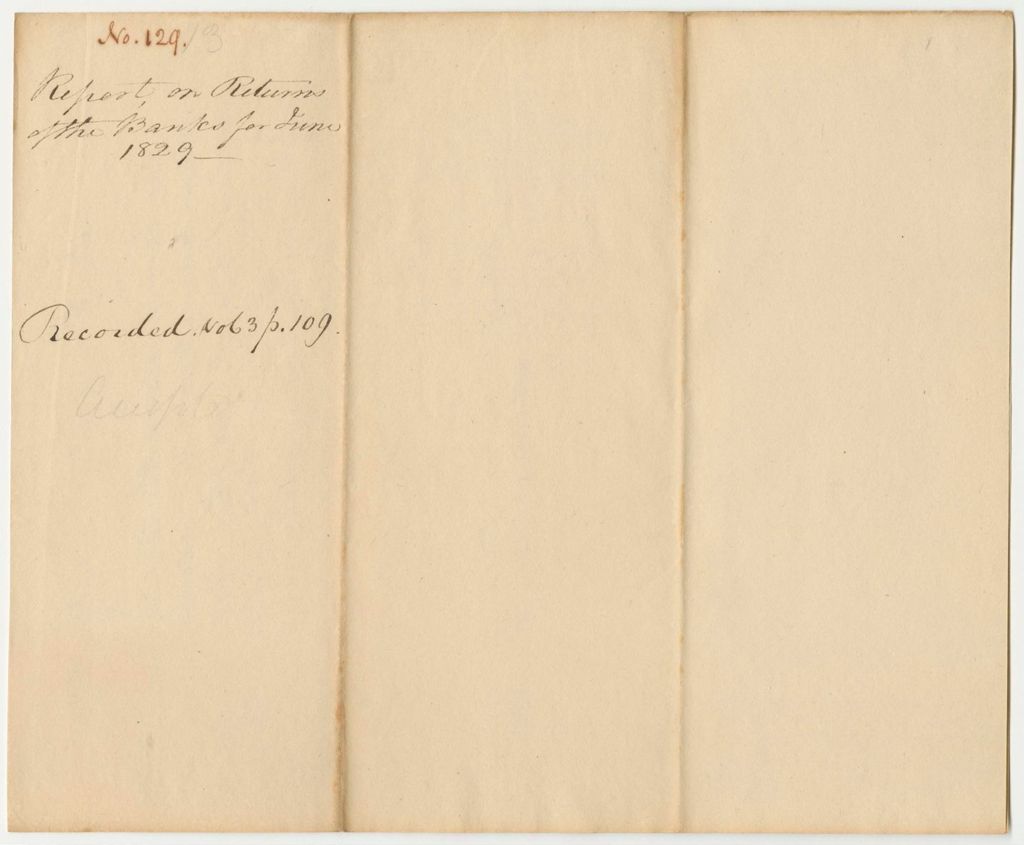 No. 129. 13
Report, on Returns
of the Banks for June
1829—
Recorded. Vol 3 p. 109.